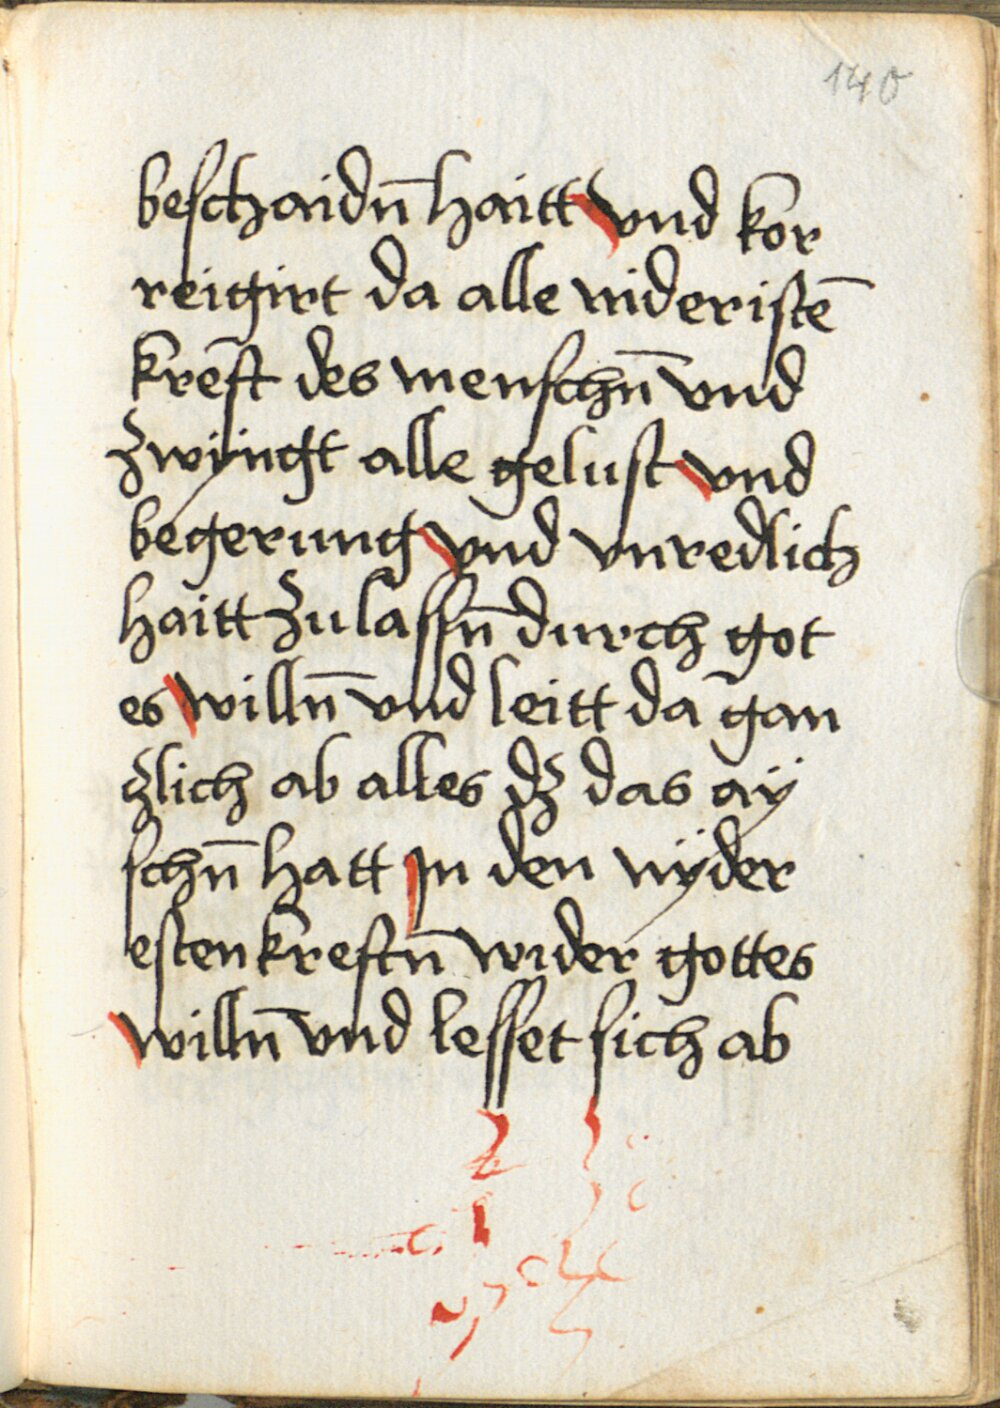 140
beschaidn̄ haitt vnd kor
reigirt da alle nideristē
krēft des menschn̄ vnd
zwÿngt alle gelust vnd
begerung vnd vnredlich
haitt zu lassn̄ durch got
es willn̄ vnd leitt da gān
zlich ab alles dz das aÿ
schn̄ hatt Jn den nÿder
esten kreftn̄ wider gottes
willn̄ vnd lesset sich ab